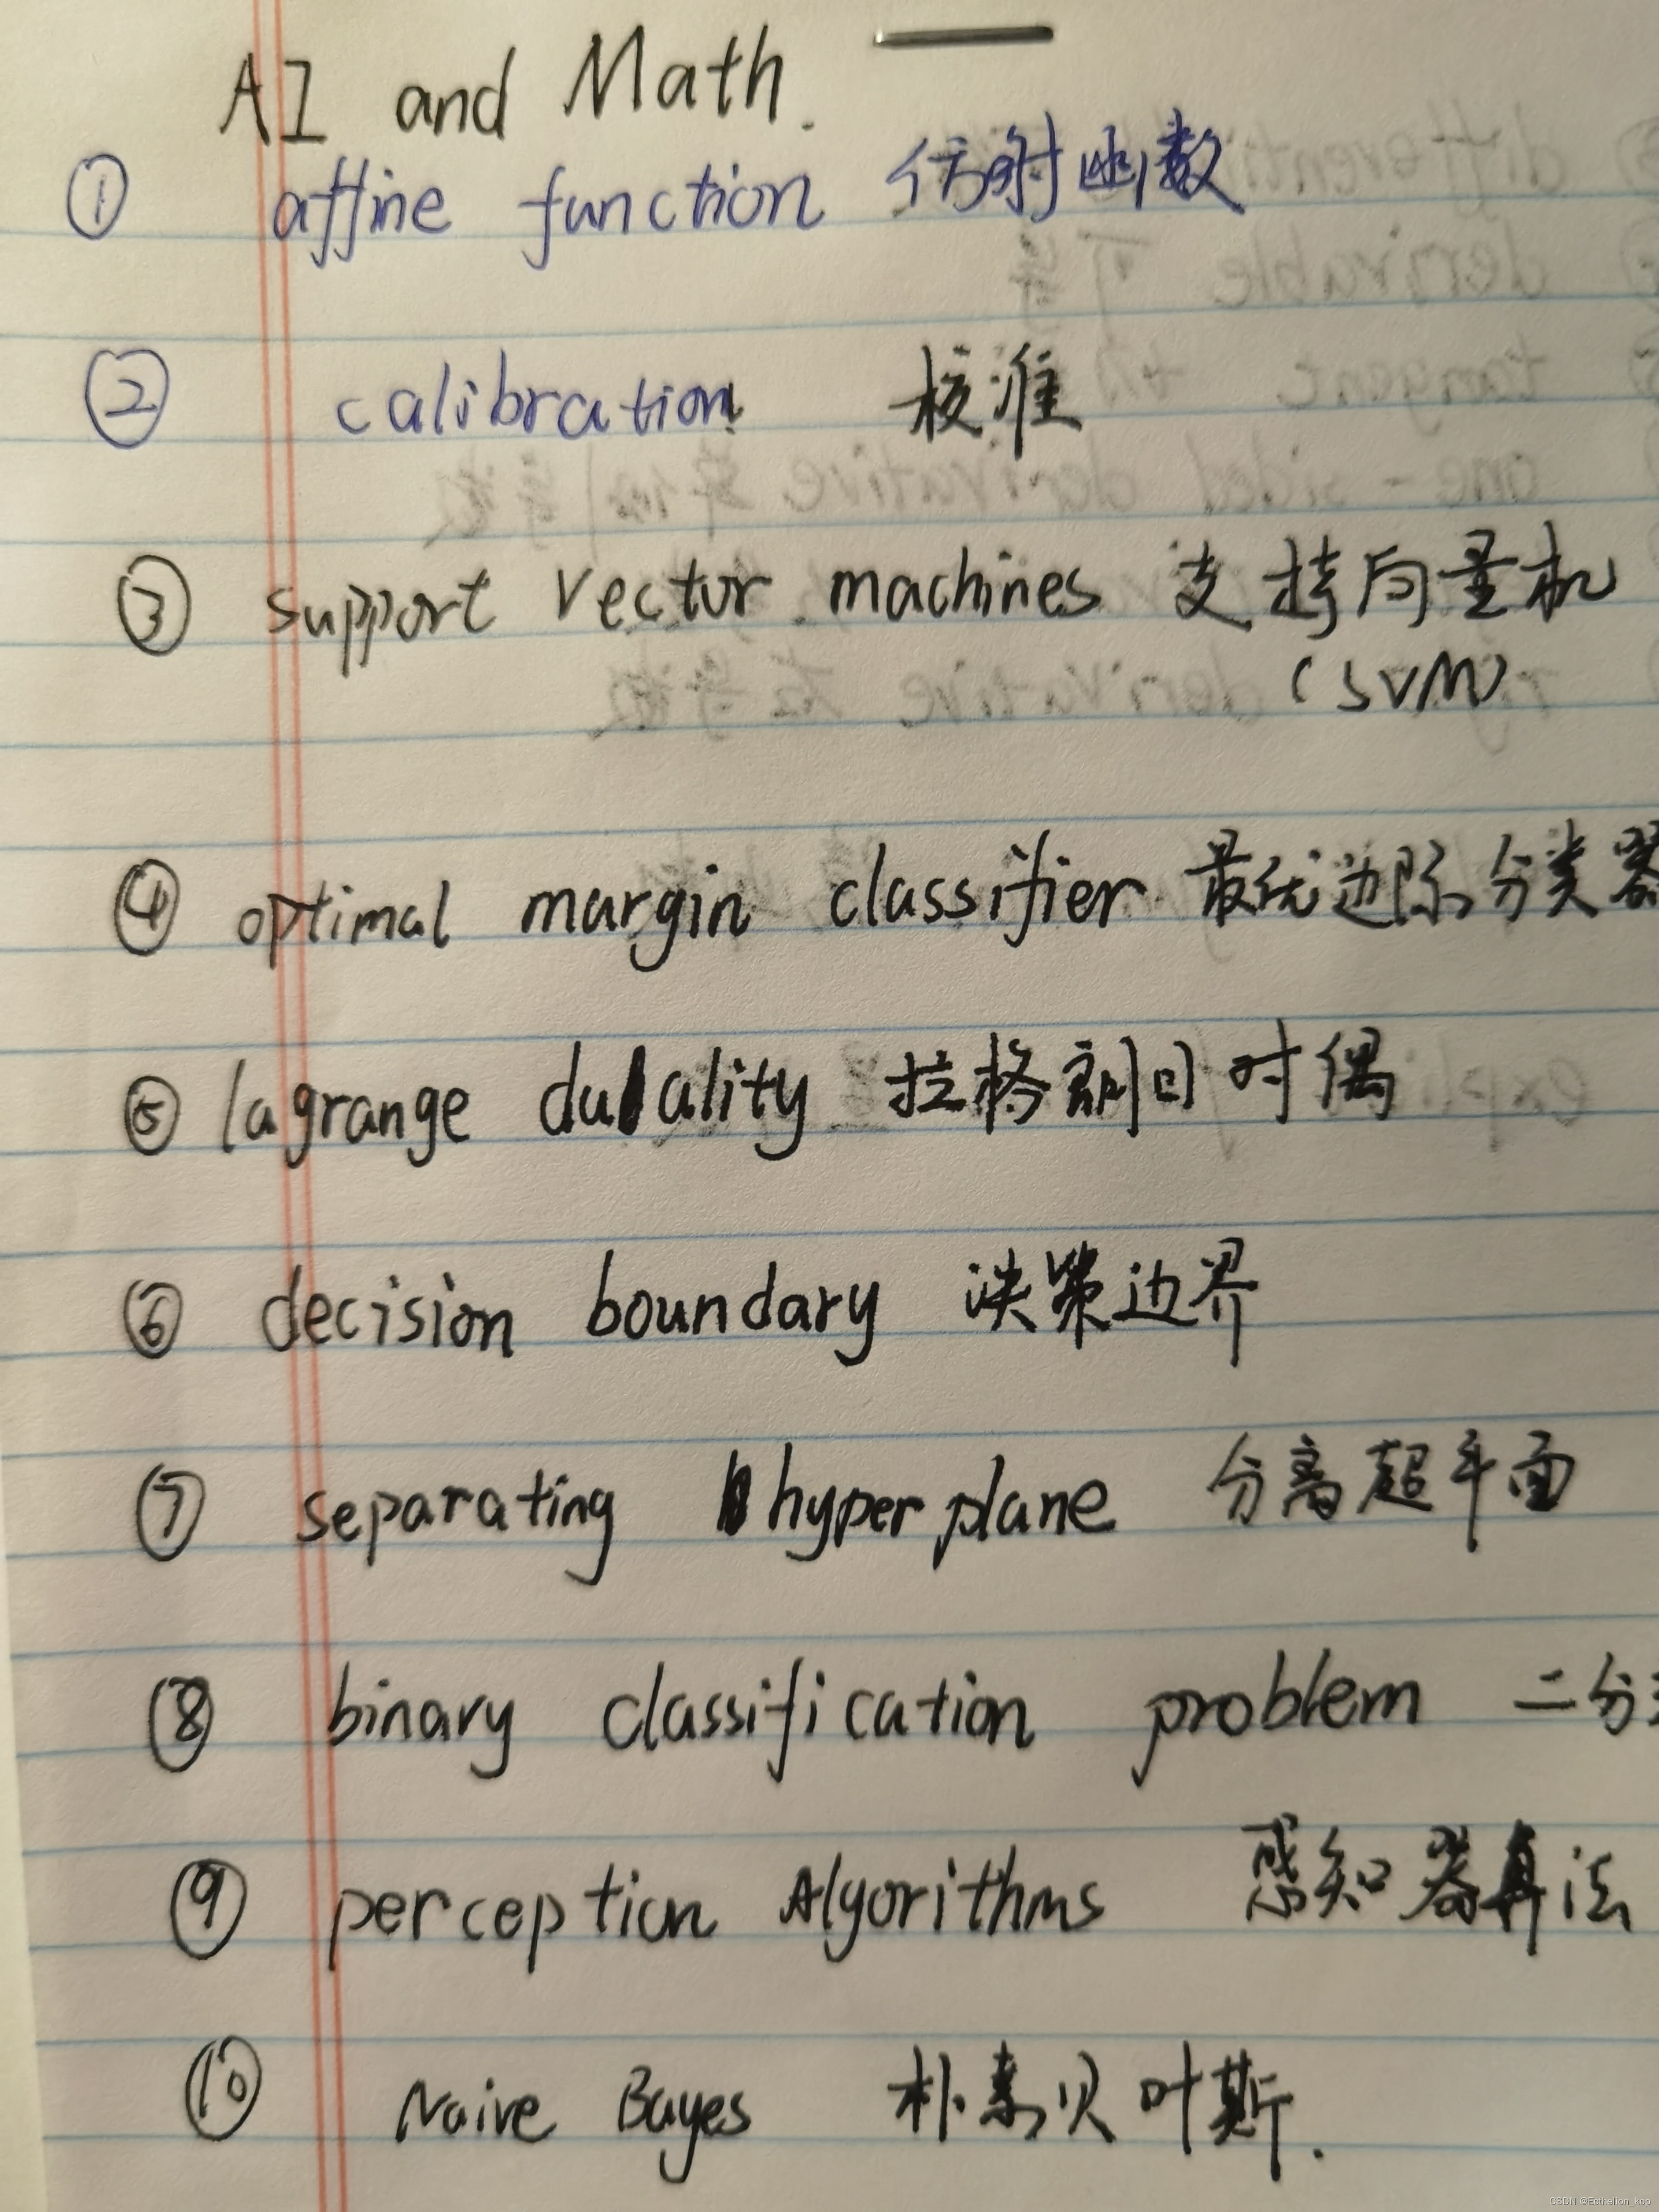 AI and Math.
① affine function 仿射函数
② calibration 校准
③ support vector machines 支持向量机
(SVM)
④ optimal margin classifier 最优边际分类器
⑤ lagrange duality 拉格朗日对偶
⑥ decision boundary 决策边界
⑦ separating hyperplane 分离超平面
⑧ binary classification problem 二分
⑨ perception Algorithms 感知器算法
⑩ Naive Bayes 朴素贝叶斯.
CSDN @Ecthelion_kop